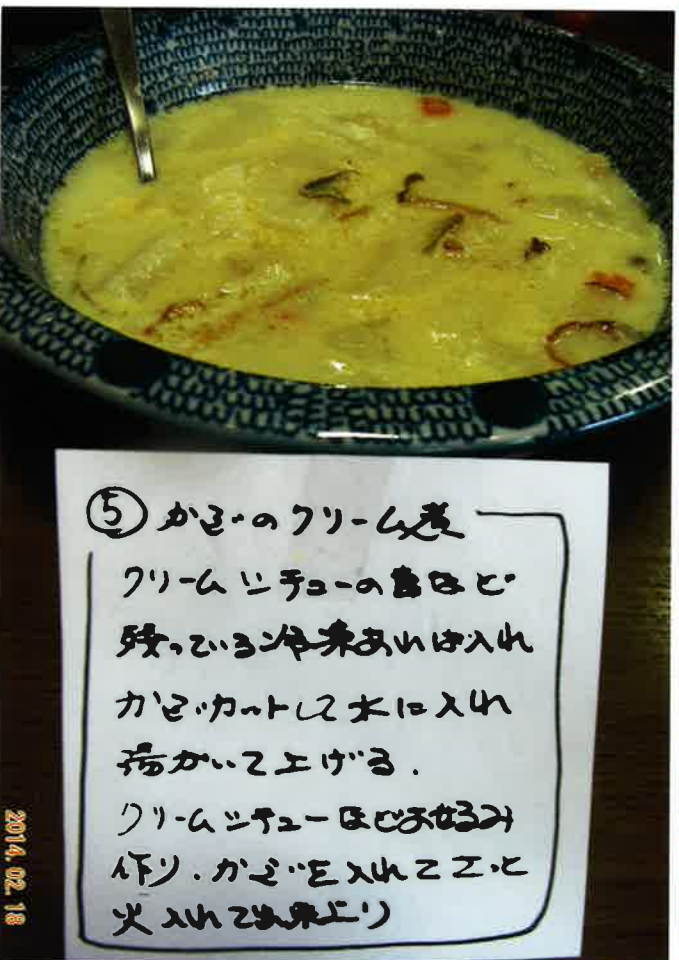 ⑤ かどのクリーム煮
クリームシチューの素など
残っている冷菜あれば入れ
かどカットして水に入れ
沸かいて上げる.
クリームシチューほど
作り、かどを入れてさっと
火入れて出来上り
2014.02.18